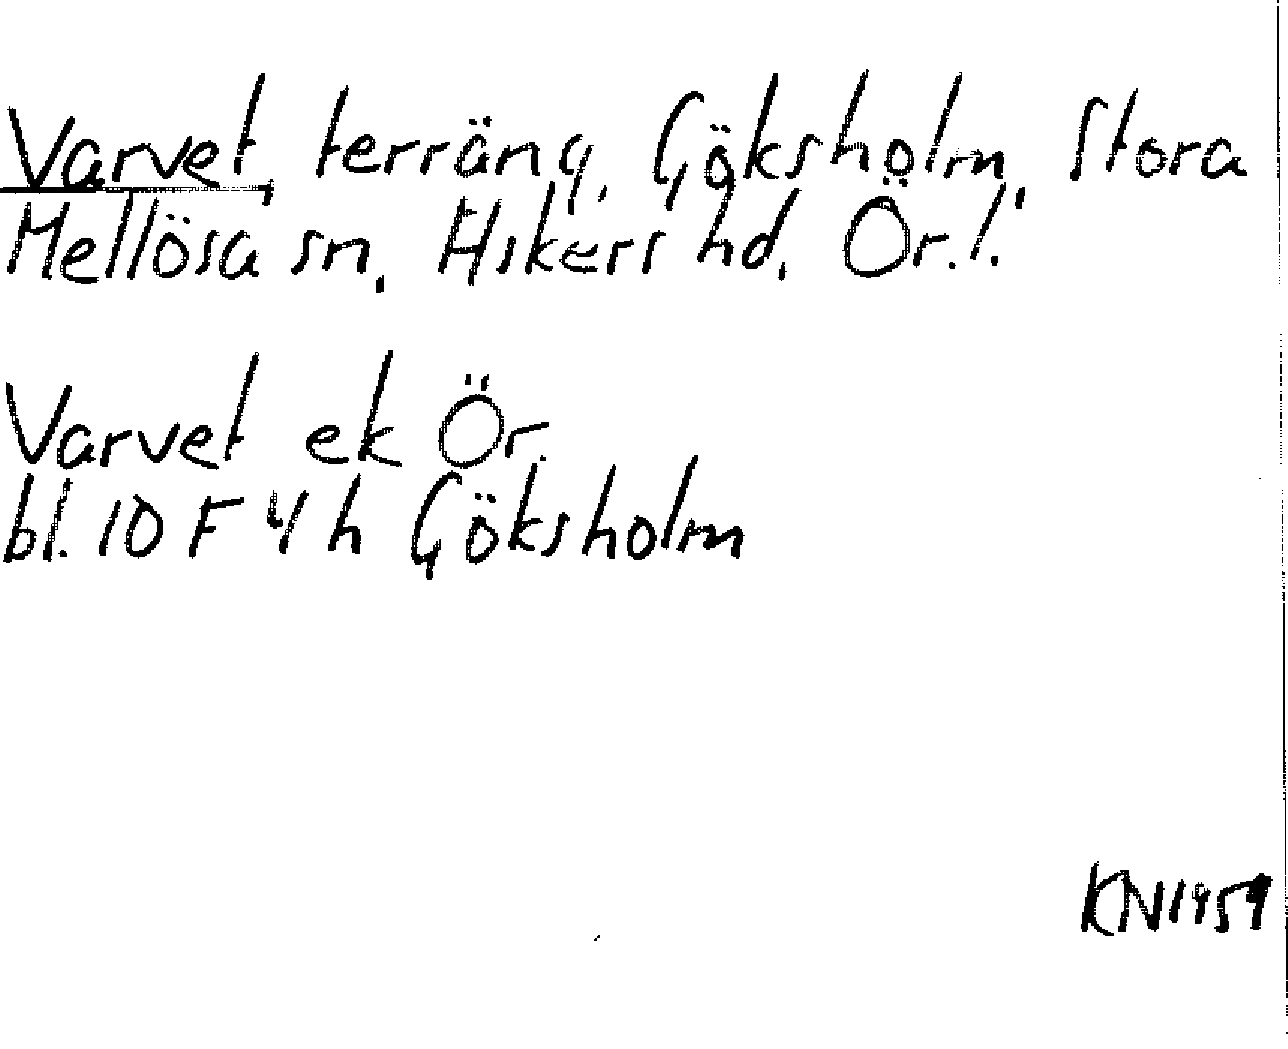 Varvet, terräng, Göksholm, Stora
Mellösa sn, Askers hd, Ör.l.
Varvet ek Ör.
bl. 10 F 4 h Göksholm
KN 1959